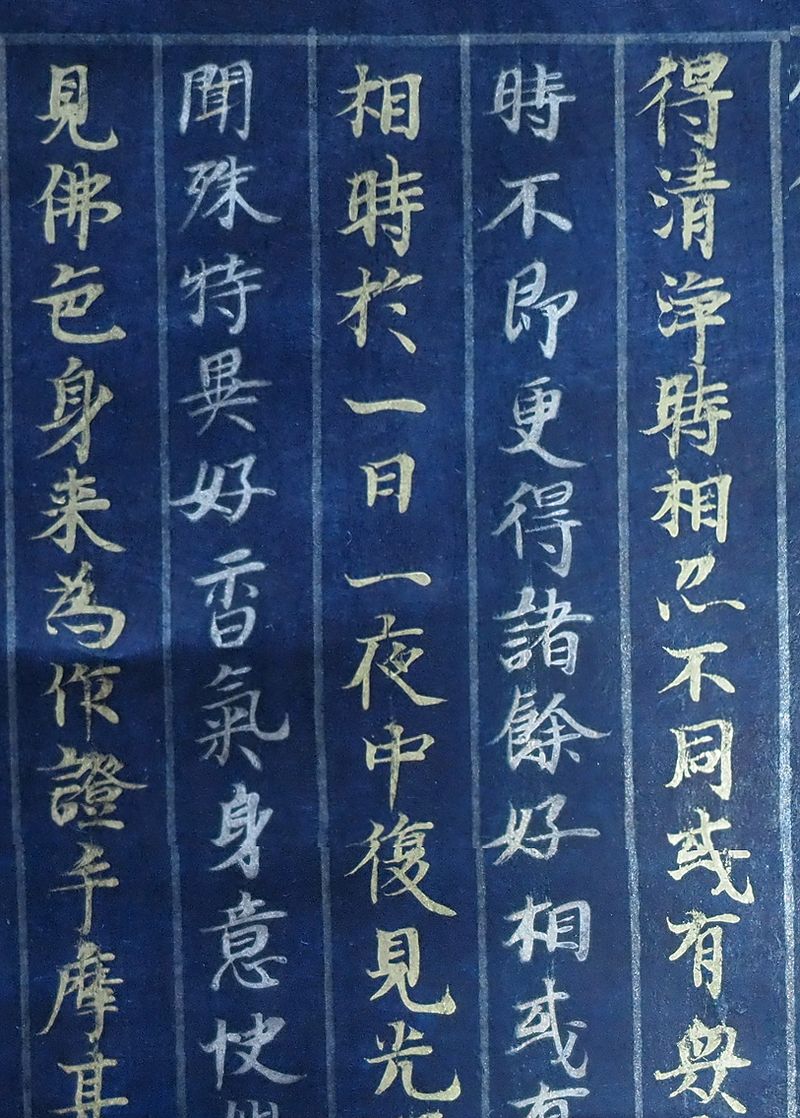 得清淨時相㤀不同或有眾
時不即更得諸餘好相或有
相時於一日一夜中復見光
聞殊特異好香氣身意快
見佛色身来為作證手摩其